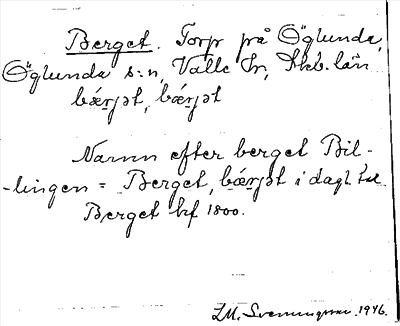 Berget. Torp på Öglunda,
Öglunda s:n, Valle hr, Skb. län
bǽrjət, bǽrjət
Namn efter berget Bil-
-lingen = Berget, bǽrjət i dagl. tal.
Berget kf 1800.
1946.